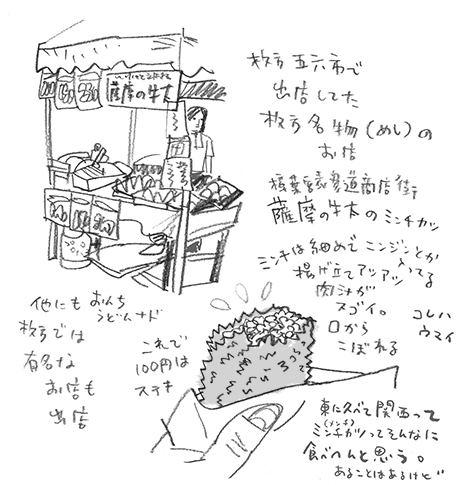 薩摩の牛太
枚方 五六市で
出店してた
枚方名物(めし)の
お店
商店街
薩摩の牛太のミンチカツ
ミンチは細めでニンジンとか
入ってる
揚げ立てアツアツ
肉汁が
スゴイ。
口から
こぼれる
コレハ
ウマイ
他にも
うどんナド
枚方では
有名な
お店も
出店
これで
100円は
ステキ
東に比べて関西って
(メンチ)
ミンチカツってそんなに
食べへんと思う。
あることはあるけど